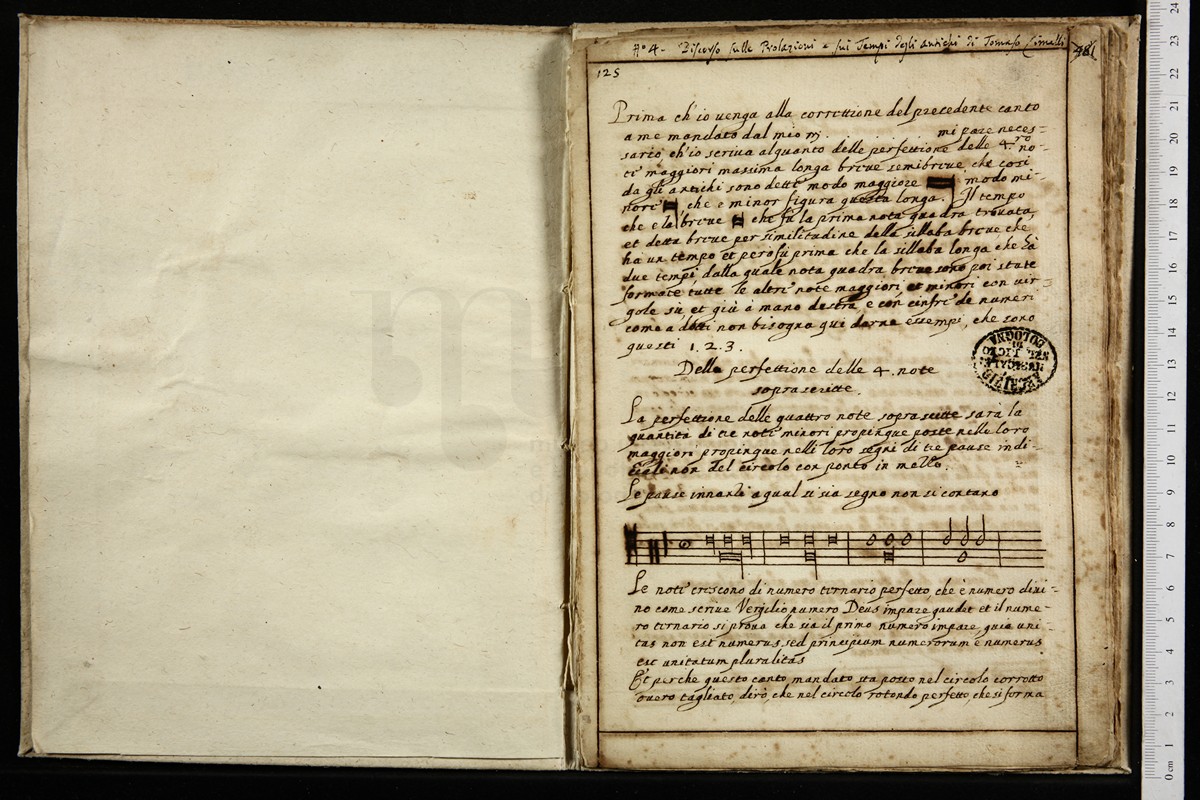 N° 4. Discorso sulle Prolazioni e sui Tempi degli Antichi di Tomaso Cimelli
125
Prima ch'io uenga alla correttione del precedente canto
a me mandato dal mio mi pare neces=
sario ch'io scriua alquanto delle perfettione delle 4.ro no-
te maggiori massima longa breue semibreue che cosi
da gli antichi sono dette modo maggiore modo mi-
nore che e minor figura questa longa. Il tempo
che e la breue che fu la prima nota quadra trouata,
et detta breue per similitudine della sillaba breue che
ha un tempo et però fù prima che la sillaba longa che hà
due tempi dalla quale nota quadra breue sono poi state
formate tutte le altre note maggiori et minori con uir=
gole sù, et giù à mano destra, e con cinfre de numeri
come a dotti non bisogna qui darne essempi, che sono
questi 1. 2. 3.
Della perfettione delle 4. note
soprascritte.
La perfettione delle quattro note soprascritte sarà la
quantità di tre note minori propinque poste nelle loro
maggiori propinque nelli loro segni di tre pause in di-
del circolo con ponto in mezzo.
Le pause innanzi a qual si sia segno non si contano
Le note crescono di numero ternario perfetto, che è numero diui=
no come scriue Vergilio numero Deus impare gaudet et il nume-
ro ternario si proua che sia il primo numero impare, quia uni-
tas non est numerus sed principium numerorum e numerus
est unitatum pluralitas
Et perche questo canto mandato sta posto nel circolo corrotto
ouero tagliato, dirò, che nel circolo rotondo perfetto, che si forma
ARCHIVIO
MUSICALE
NEL LICEO
DI
BOLOGNA
24
23
22
21
20
19
18
17
16
15
14
13
12
11
10
9
8
7
6
5
4
3
2
1
0 cm